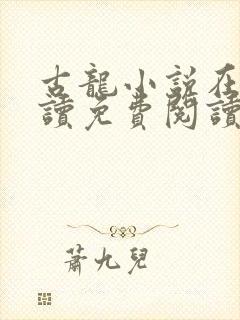 古龍小說在
讀免費閱讀
蕭九兒